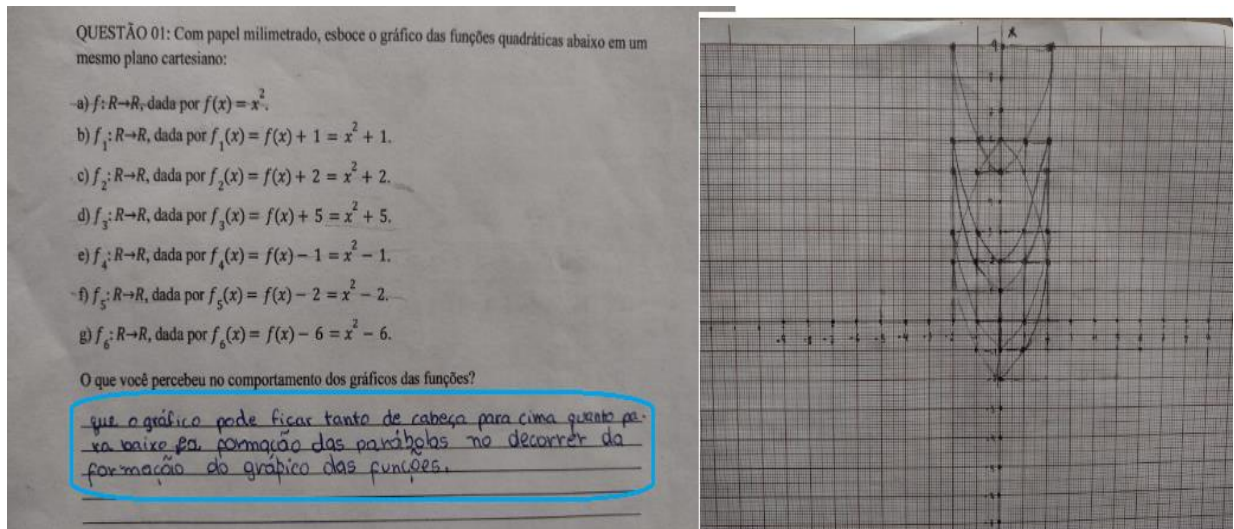 QUESTÃO 01: Com papel milimetrado, esboce o gráfico das funções quadráticas abaixo em um
mesmo plano cartesiano:
a) f: R→R, dada por f(x) = x².
b) f₁: R→R, dada por f₁(x) = f(x) + 1 = x² + 1.
c) f₂: R→R, dada por f₂(x) = f(x) + 2 = x² + 2.
d) f₃: R→R, dada por f₃(x) = f(x) + 5 = x² + 5.
e) f₄: R→R, dada por f₄(x) = f(x) − 1 = x² − 1.
f) f₅: R→R, dada por f₅(x) = f(x) − 2 = x² − 2.
g) f₆: R→R, dada por f₆(x) = f(x) − 6 = x² − 6.
O que você percebeu no comportamento dos gráficos das funções?
que o gráfico pode ficar tanto de cabeça para cima quanto pa-
ra baixo formação das parábolas no decorrer da
formação do gráfico das funções.